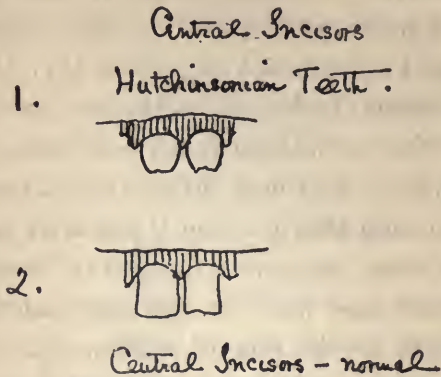 Central Incisors
Hutchinsonian Teeth.
1.
2.
Central Incisors - normal